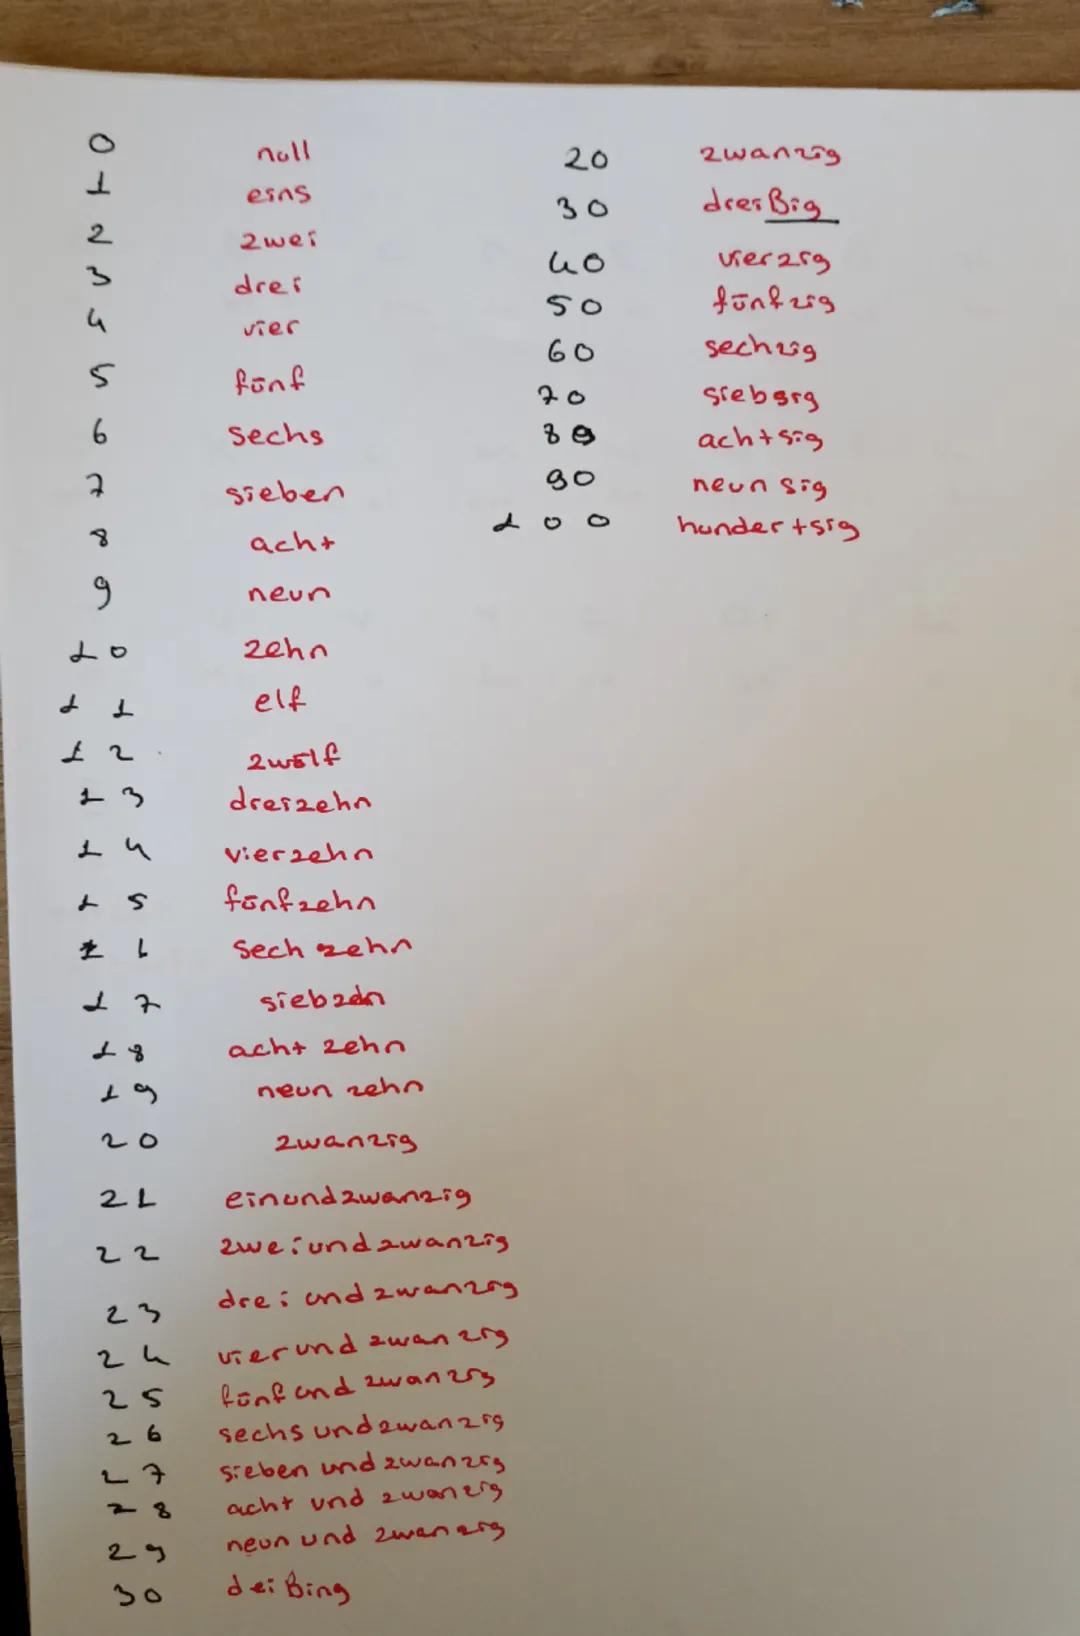 0 null
1 eins
2 zwei
3 drei
4 vier
5 fünf
6 sechs
7 sieben
8 acht
9 neun
10 zehn
11 elf
12 zwölf
13 dreizehn
14 vierzehn
15 fünfzehn
16 sech zehn
17 siebzehn
18 acht zehn
19 neun zehn
20 zwanzig
21 einundzwanzig
22 zweiundzwanzig
23 drei und zwanzig
24 vierund zwanzig
25 fünf und zwanzig
26 sechs undzwanzig
27 sieben und zwanzig
28 acht und zwanzig
29 neun und zwanzig
30 dei ßing
20 zwanzig
30 dreißig
40 vierzig
50 fünfzig
60 sechzig
70 siebsig
80 achtsig
90 neun sig
100 hundertsig